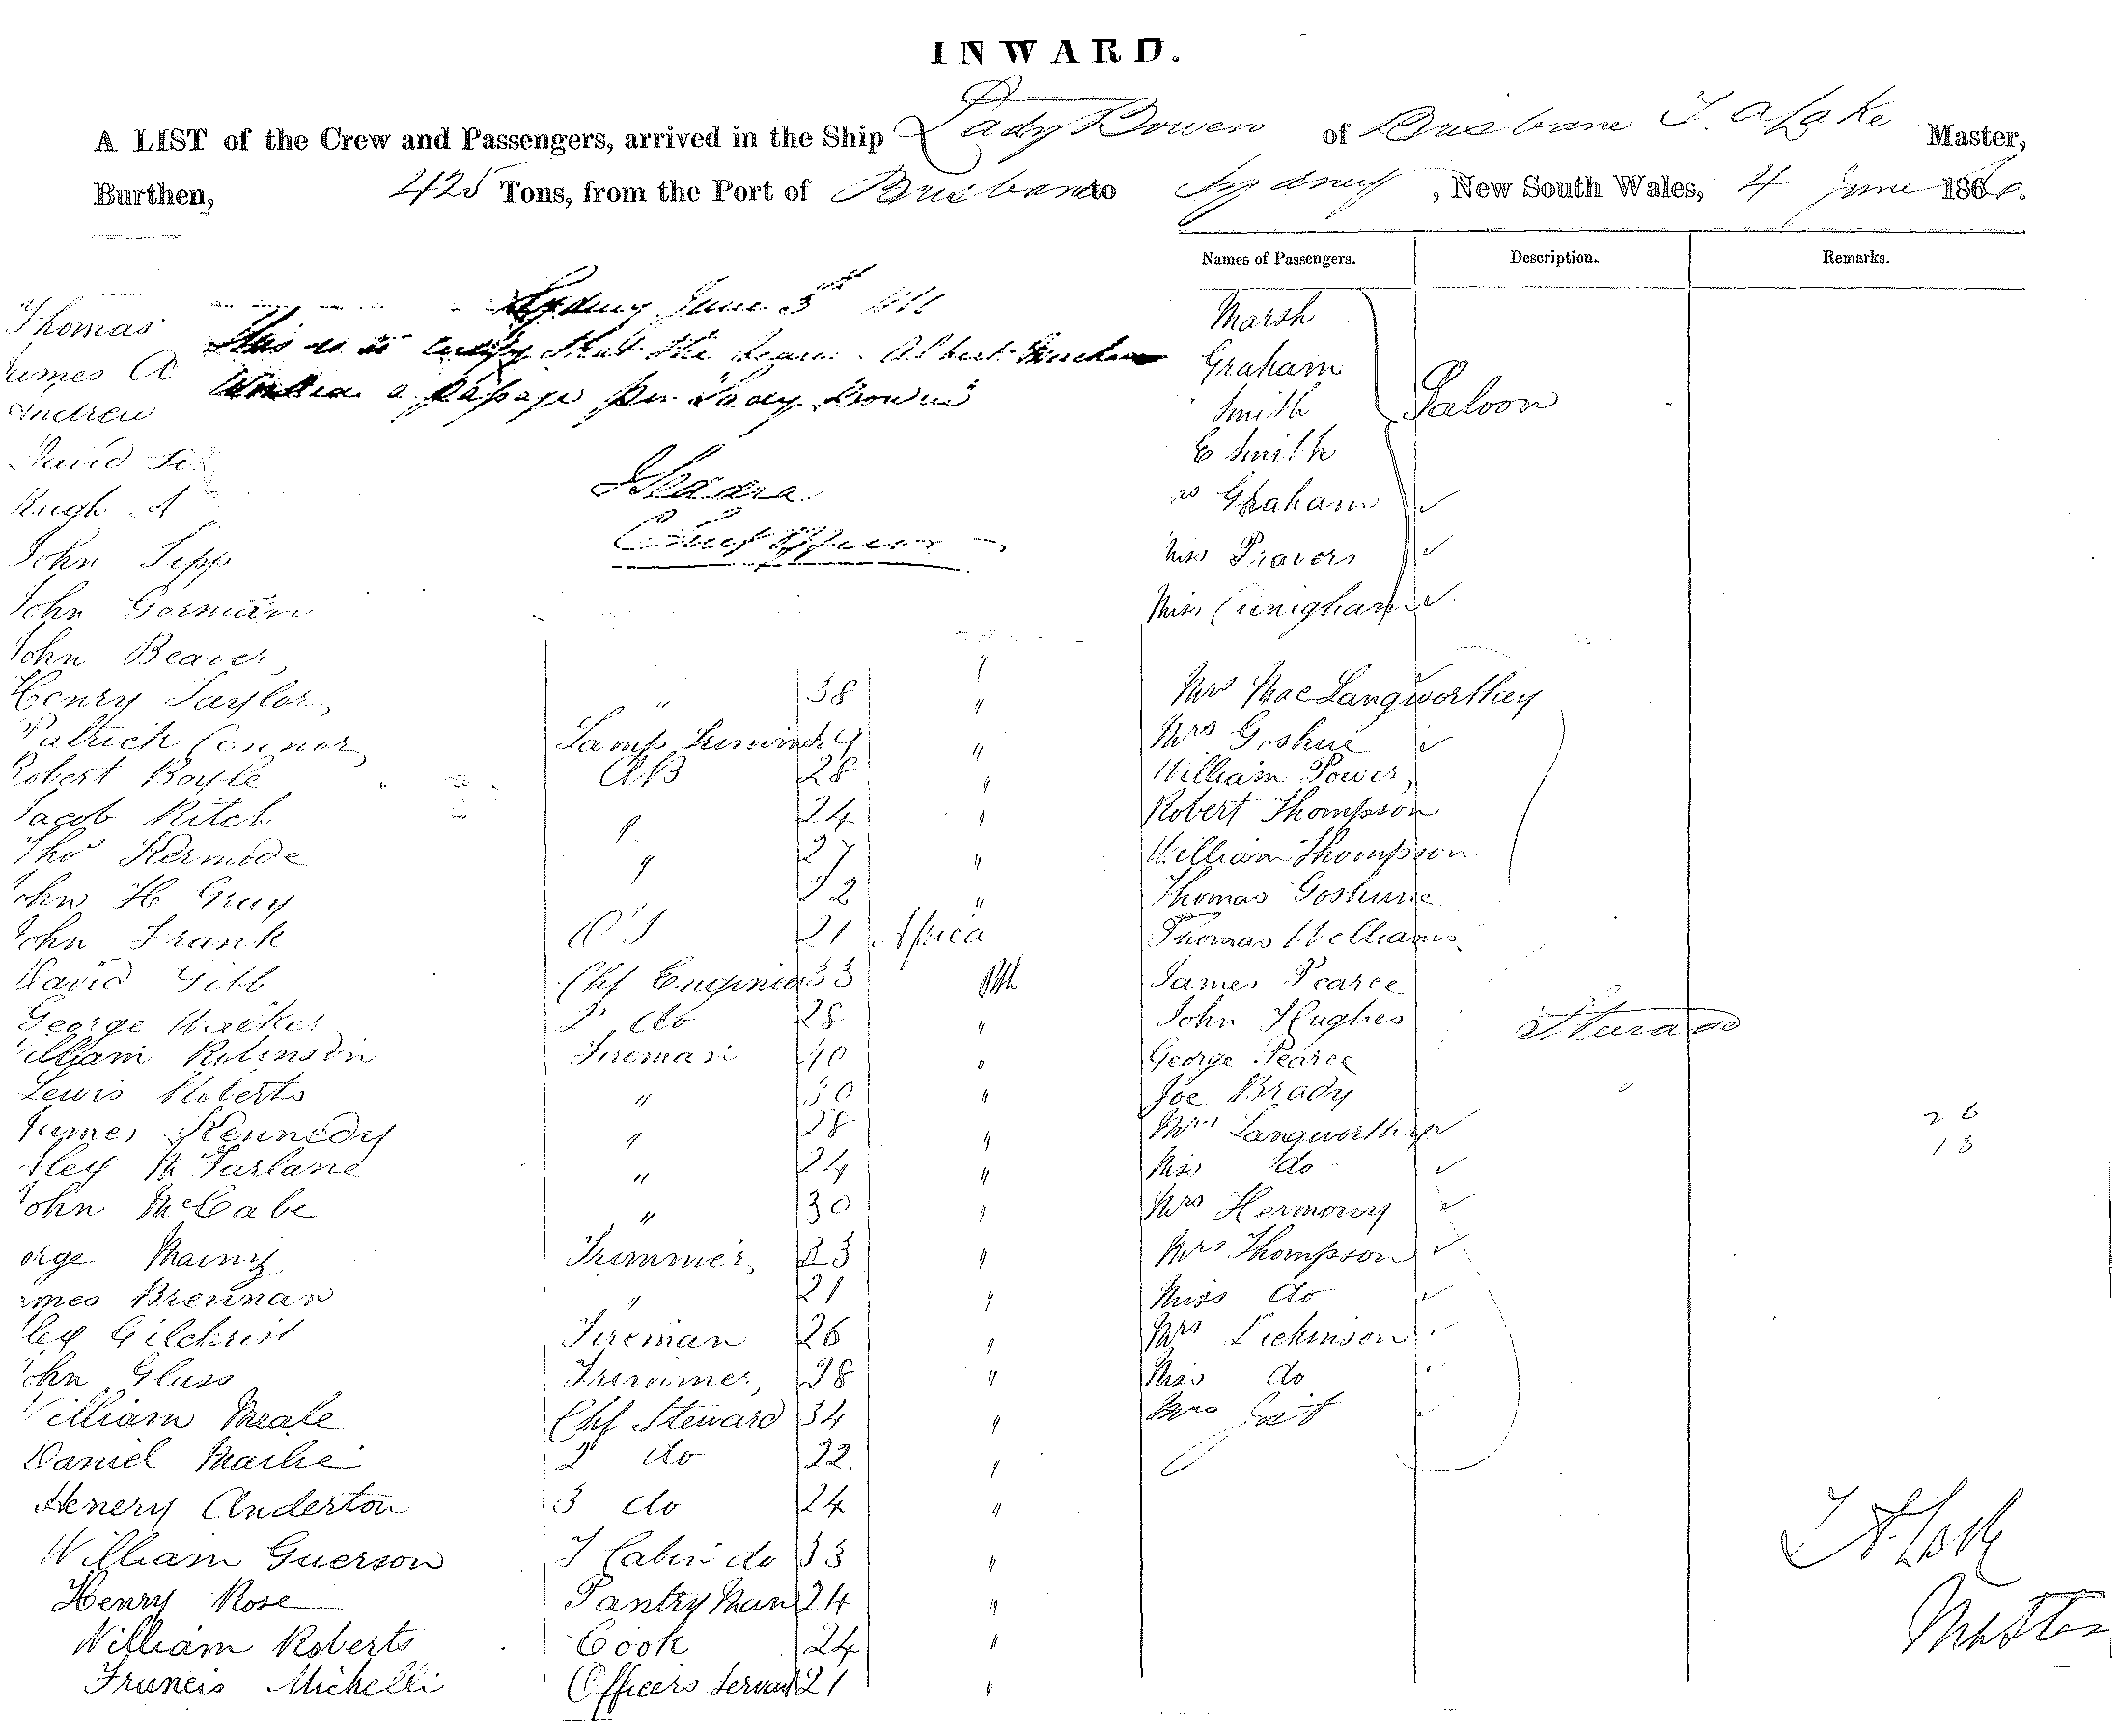 INWARD.
A LIST of the Crew and Passengers, arrived in the Ship Lady Bowen of Brisbane T. A Lake Master,
Burthen, 425 Tons, from the Port of Brisbane to Sydney, New South Wales, 4 June 186
Names of Passengers. Description. Remarks.
Sydney June 5th
This is to certify that the bearer Albert
a passage per Lady Bowen
Chief Officer
Thomas
James A
Andrew
David
Hugh
John Tepp
John Gorman
John Beaver
Henry Taylor 38 "
Patrick Connor Lamp "
Robert Boyle AB 28 "
Jacob Ritch " 24 "
Thos Kermode " 27 "
John H Gray "
John Frank O S 21 Africa
David Gibb Chf Enginier 33
George Walker 2 do 28 "
William Robinson Fireman 40 "
Lewis Roberts " 30 "
James Kennedy " 28 "
Alex McFarlane " 24 "
John McCabe " 30 "
orge Trimmer 23 "
James Brennan " 21 "
Alex Gilchrist Fireman 26 "
John Glass Trimmer 28 "
William Meale Chf Steward 34 "
Daniel 2 do 22 "
Henery Anderton 3 do 24 "
William Guerson F Cabin do 33 "
Henry Rose Pantry Man 24 "
William Roberts Cook 24 "
Francis Michelli Officers Servant 21 "
Marsh
Graham
Smith
Saloon
E Smith
Graham
Miss Travers
Miss Cunigham
Mrs MacLangworthey
Mrs Goshue
William Power
Robert Thompson
William Thompson
Thomas Goshune
Thomas Williams
James Pearce
John Hughes
Sturage
George Pearce
Joe Brady
Mrs Langworthy
Miss do
Mrs Hermony
Mrs Thompson
Miss do
Mrs Dickinson
Miss do
Mrs
26
13
T A Lake
Master